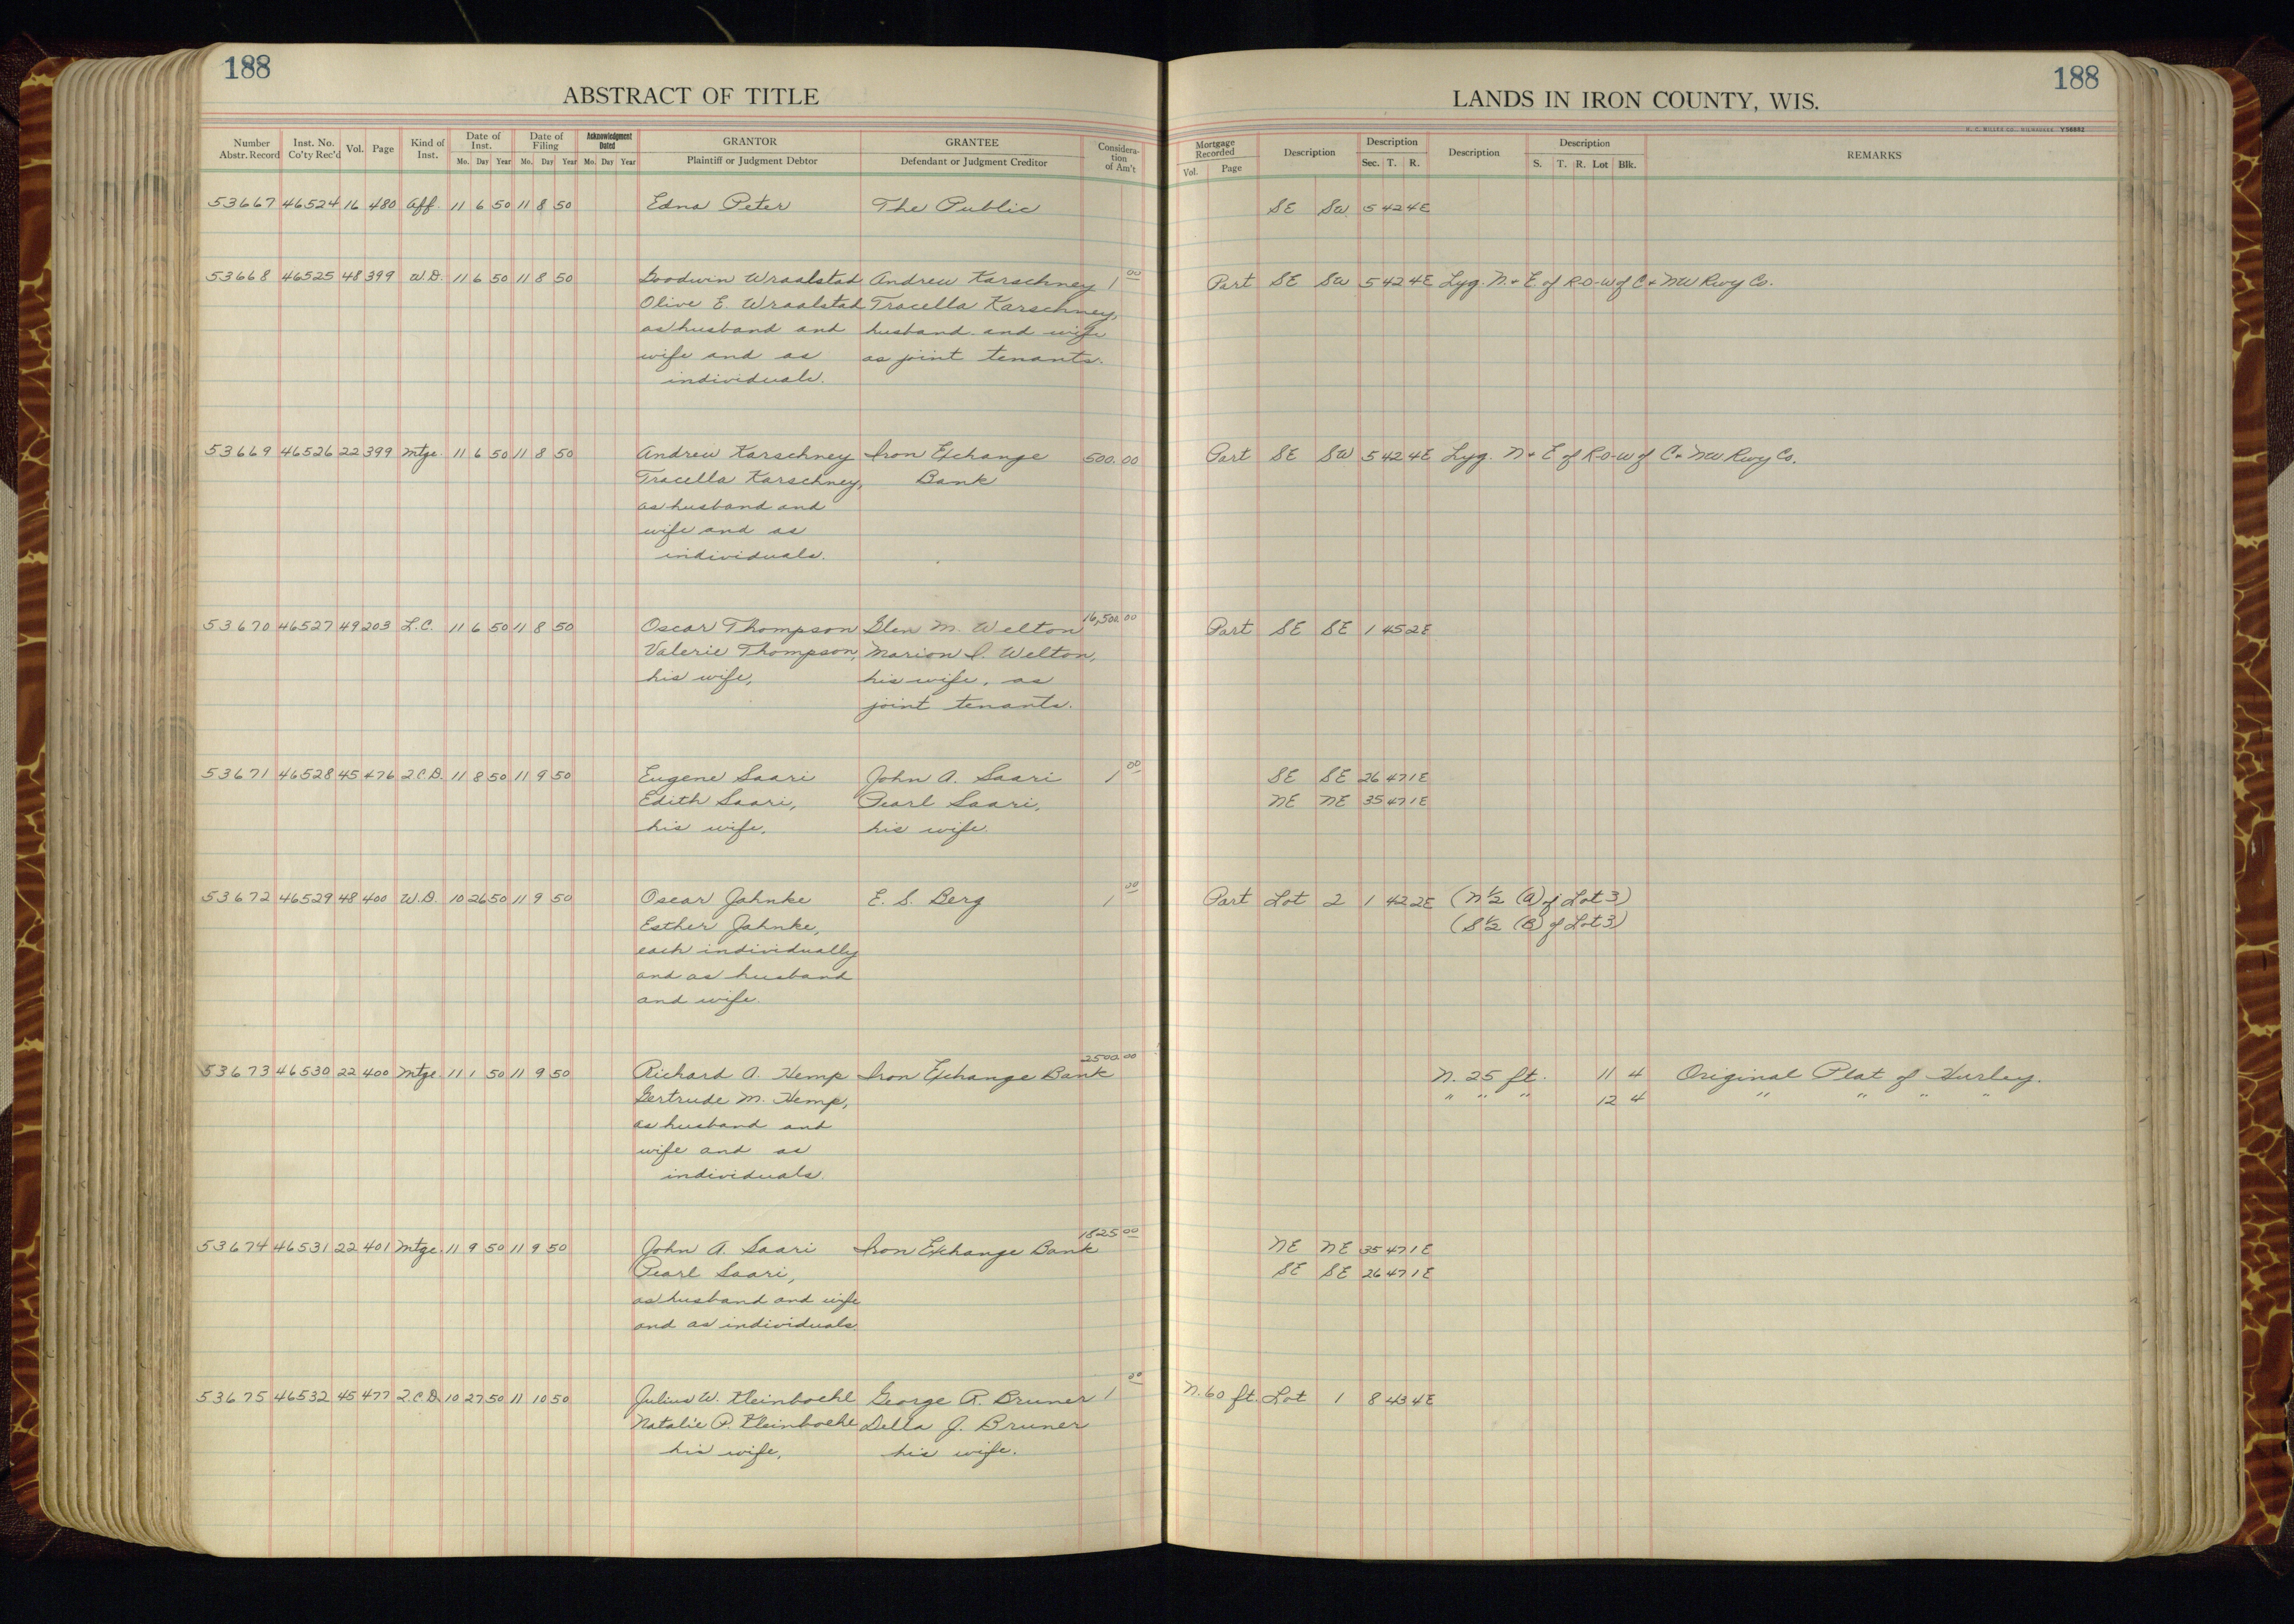 188
ABSTRACT OF TITLE
Number Abstr. Record Inst. No. Co'ty Rec'd Vol. Page Kind of Inst. Date of Inst. Mo. Day Year Date of Filing Mo. Day Year Acknowledgment Dated Mo. Day Year GRANTOR Plaintiff or Judgment Debtor GRANTEE Defendant or Judgment Creditor Consideration of Am't
53667 46524 16 480 Aff. 11 6 50 11 8 50 Edna Peter The Public
53668 46525 48 399 W.D. 11 6 50 11 8 50 Goodwin Wraalstad Andrew Karschney 1 00
Olive E. Wraalstad Tracella Karschney,
as husband and husband and wife
wife and as as joint tenants.
individuals.
53669 46526 22 399 Mtge. 11 6 50 11 8 50 Andrew Karschney Iron Exchange 500.00
Tracella Karschney, Bank
as husband and
wife and as
individuals.
53670 46527 49 203 L.C. 11 6 50 11 8 50 Oscar Thompson Glen M. Welton 16,500.00
Valerie Thompson, Marion I. Welton,
his wife, his wife, as
joint tenants.
53671 46528 45 476 Q.C.D. 11 8 50 11 9 50 Eugene Saari John A. Saari 1 00
Edith Saari, Pearl Saari,
his wife, his wife.
53672 46529 48 400 W.D. 10 26 50 11 9 50 Oscar Jahnke E. S. Berg 1 00
Esther Jahnke,
each individually
and as husband
and wife.
53673 46530 22 400 Mtge. 11 1 50 11 9 50 Richard A. Hemp Iron Exchange Bank 2500.00
Gertrude M. Hemp,
as husband and
wife and as
individuals.
53674 46531 22 401 Mtge. 11 9 50 11 9 50 John A. Saari Iron Exchange Bank 1825 00
Pearl Saari,
as husband and wife
and as individuals.
53675 46532 45 477 Q.C.D. 10 27 50 11 10 50 Julius W. Kleinboehl George R. Bruner 1 00
Natalie P. Kleinboehl Della J. Bruner
his wife, his wife.
188
LANDS IN IRON COUNTY, WIS.
H. C. MILLER CO., MILWAUKEE Y56882
Mortgage Recorded Vol. Page Description Description Sec. T. R. Description Description S. T. R. Lot Blk. REMARKS
SE SW 5 42 4E
Part SE SW 5 42 4E Lyg. N. + E. of R-O-W of C + NW Rwy Co.
Part SE SW 5 42 4E Lyg. N + E of R-O-W of C + NW Rwy Co.
Part SE SE 1 45 2E
SE SE 26 47 1E
NE NE 35 47 1E
Part Lot 2 1 42 2E (N 1/2 (A) of Lot 3)
(S 1/2 (B) of Lot 3)
N. 25 ft. 11 4 Original Plat of Hurley.
" " " 12 4 " " " "
NE NE 35 47 1E
SE SE 26 47 1E
N. 60 ft. Lot 1 8 43 4E